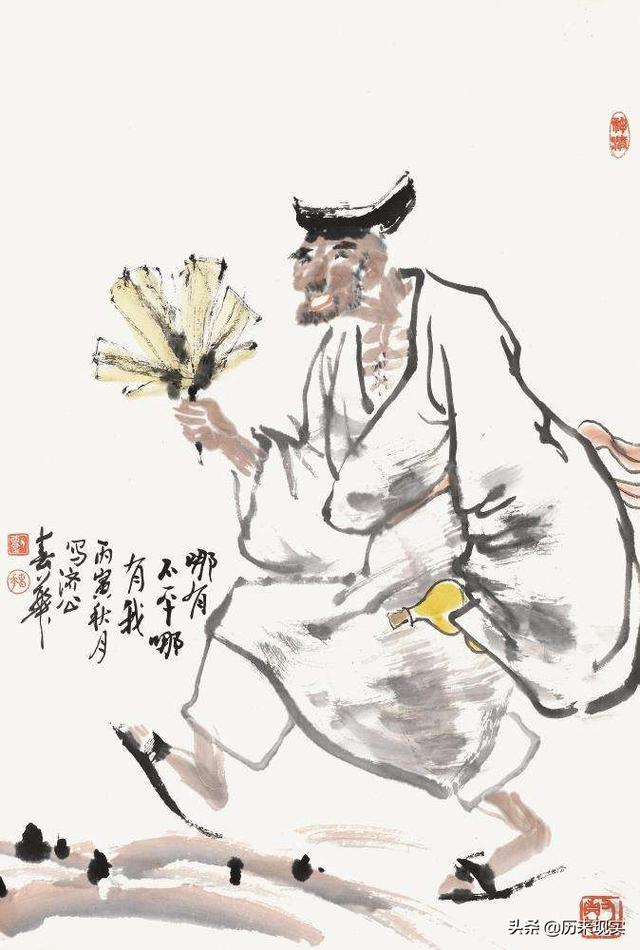 哪有
不平哪
有我
丙寅秋月
写济公
春华
头条 @历来现实